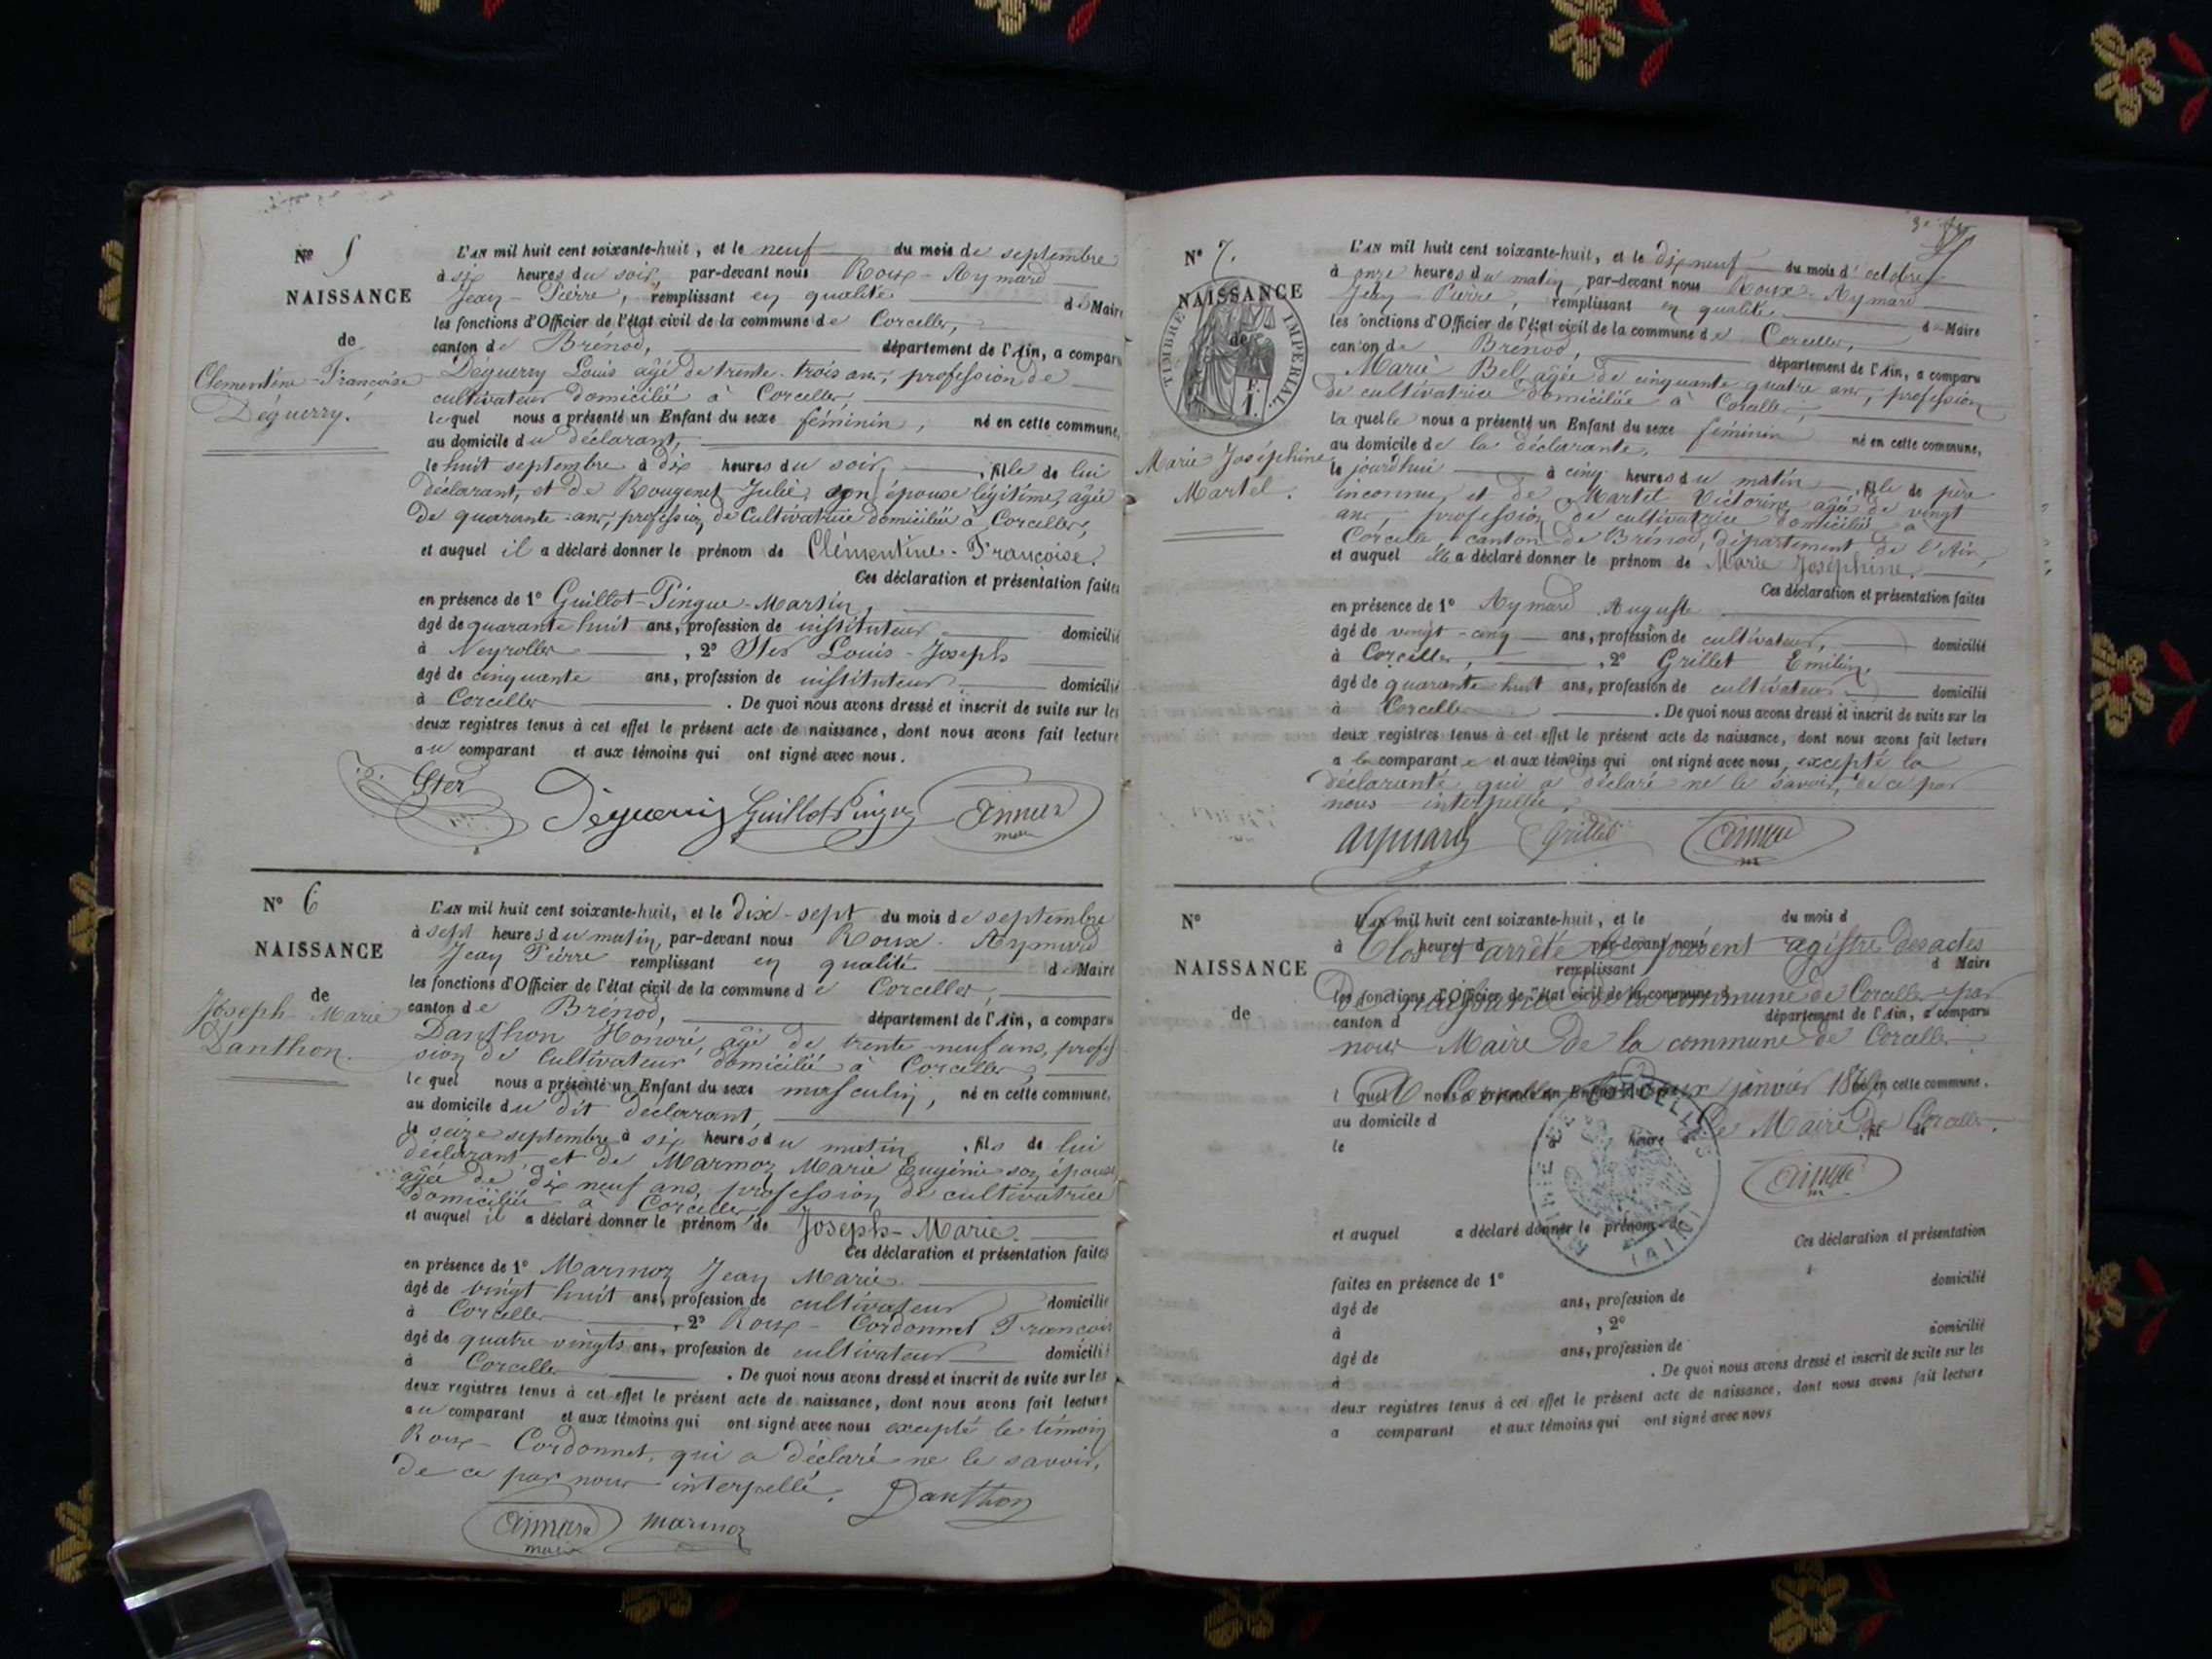 Nº 5
NAISSANCE
de
Clementine-Françoise
Déguerry.
L'AN mil huit cent soixante-huit, et le neuf du mois de septembre
à six heures du soir, par-devant nous Roux-Aymard
Jean-Pierre, remplissant en qualité de Maire
les fonctions d'Officier de l'état civil de la commune de Corcelles,
canton de Brénod, département de l'Ain, a comparu
Déguerry Louis âgé de trente-trois ans, profession de
cultivateur domicilié à Corcelles,
lequel nous a présenté un Enfant du sexe féminin, né en cette commune,
au domicile du déclarant,
le huit septembre à dix heures du soir, fille de lui
déclarant, et de Rougemet Julie, son épouse légitime, âgée
de quarante ans, profession de Cultivatrice domiciliée à Corcelles,
et auquel il a déclaré donner le prénom de Clémentine-Françoise.
Ces déclaration et présentation faites
en présence de 1º Guillot-Pingue-Martin,
âgé de quarante huit ans, profession de instituteur domicilié
à Neyrolles, 2º Ster Louis-Joseph
âgé de cinquante ans, profession de instituteur domicilié
à Corcelles. De quoi nous avons dressé et inscrit de suite sur les
deux registres tenus à cet effet le présent acte de naissance, dont nous avons fait lecture
au comparant et aux témoins qui ont signé avec nous.
Ster Guillot Pingue
Nº 6
NAISSANCE
de
Joseph-Marie
Danthon.
L'AN mil huit cent soixante-huit, et le dix-sept du mois de septembre
à sept heures du matin, par-devant nous Roux-Aymard
Jean Pierre remplissant en qualité de Maire
les fonctions d'Officier de l'état civil de la commune de Corcelles,
canton de Brénod, département de l'Ain, a comparu
Danthon Honoré, âgé de trente-neuf ans, profes
sion de Cultivateur domicilié à Corcelles,
lequel nous a présenté un Enfant du sexe masculin, né en cette commune,
au domicile du dit déclarant,
le seize septembre à six heures du matin, fils de lui
déclarant, et de Marmoz Marie Eugénie son épouse
âgée de dix neuf ans, profession de cultivatrice
domiciliée à Corcelles,
et auquel il a déclaré donner le prénom de Joseph-Marie.
Ces déclaration et présentation faites
en présence de 1º Marmoz Jean Marie
âgé de vingt huit ans, profession de cultivateur domicilié
à Corcelles, 2º Roux-Cordonnet François
âgé de quatre vingts ans, profession de cultivateur domicilié
à Corcelles. De quoi nous avons dressé et inscrit de suite sur les
deux registres tenus à cet effet le présent acte de naissance, dont nous avons fait lecture
au comparant et aux témoins qui ont signé avec nous excepté le témoin
Roux-Cordonnet, qui a déclaré ne le savoir,
de ce par nous interpellé. Danthon
marmoz
Nº 7.
NAISSANCE
de
TIMBRE IMPERIAL
Marie Joséphine
Martel.
L'AN mil huit cent soixante-huit, et le dix neuf du mois d'octobre
à onze heures du matin, par-devant nous Roux-Aymard
Jean-Pierre, remplissant en qualité de Maire
les fonctions d'Officier de l'état civil de la commune de Corcelles,
canton de Brénod, département de l'Ain, a comparu
Marie Bel âgée de cinquante quatre ans, profession
de cultivatrice domiciliée à Corcelles,
laquelle nous a présenté un Enfant du sexe féminin né en cette commune,
au domicile de la déclarante,
le jourdhui à cinq heures du matin, fille de père
inconnu, et de Martel Victorine âgée de vingt
ans, profession de cultivatrice domiciliée à
Corcelles canton de Brénod, département de l'Ain,
et auquel elle a déclaré donner le prénom de Marie Joséphine.
Ces déclaration et présentation faites
en présence de 1º Aymard Auguste
âgé de vingt-cinq ans, profession de cultivateur, domicilié
à Corcelles, 2º Grillet Emilin,
âgé de quarante huit ans, profession de cultivateur domicilié
à Corcelles. De quoi nous avons dressé et inscrit de suite sur les
deux registres tenus à cet effet le présent acte de naissance, dont nous avons fait lecture
a la comparante et aux témoins qui ont signé avec nous, excepté la
déclarante qui a déclaré ne le savoir, de ce par
nous interpellée.
aymard Grillet
Nº
NAISSANCE
de
L'AN mil huit cent soixante-huit, et le du mois d
à heures d par-devant nous
Clos et arrêté le présent registre des actes
remplissant d Maire
les fonctions d'Officier de l'état civil de la commune d
de naissance de la commune de Corcelles par
canton d département de l'Ain, a comparu
nous Maire de la commune de Corcelles
l quel nous a présenté un Enfant du sexe né en cette commune,
A Corcelles janvier
au domicile d
Le Maire de Corcelles.
le à heure d fil de
MAIRIE DE CORCELLES (AIN)
et auquel a déclaré donner le prénom de
Ces déclaration et présentation
faites en présence de 1º domicilié
âgé de ans, profession de
à , 2º domicilié
âgé de ans, profession de
à . De quoi nous avons dressé et inscrit de suite sur les
deux registres tenus à cet effet le présent acte de naissance, dont nous avons fait lecture
a comparant et aux témoins qui ont signé avec nous